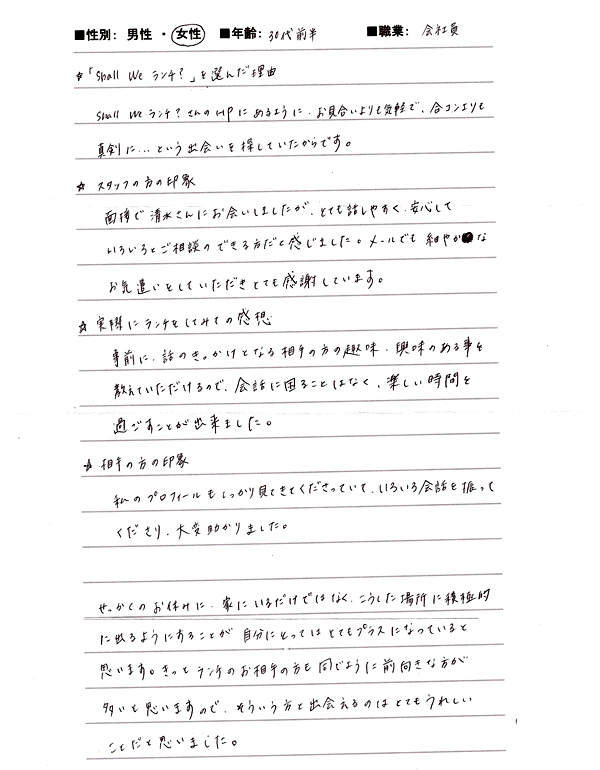 ■性別: 男性 ・ 女性 ■年齢: 30代前半 ■職業: 会社員
☆「Shall We ランチ?」を選んだ理由
Shall We ランチ?さんのHPにあるように、お見合いよりも気軽で、合コンよりも
真剣に…という出会いを探していたからです。
☆ スタッフの方の印象
面接で清水さんにお会いしましたが、とても話しやすく、安心して
いろいろとご相談のできる方だと感じました。メールでも細やかな
お気遣いをしていただきとても感謝しています。
☆ 実際にランチをしてみての感想
事前に、話のきっかけとなる相手の方の趣味・興味のある事を
教えていただけるので、会話に困ることはなく、楽しい時間を
過ごすことが出来ました。
☆ 相手の方の印象
私のプロフィールもしっかり見てきてくださっていて、いろいろ会話を振って
くださり、大変助かりました。
せっかくのお休みに、家にいるだけではなく、こうした場所に積極的
に出るようにすることが自分にとってはとてもプラスになっていると
思います。きっとランチのお相手の方も同じように前向きな方が
多いと思いますので、そういう方と出会えるのはとてもうれしい
ことだと思いました。